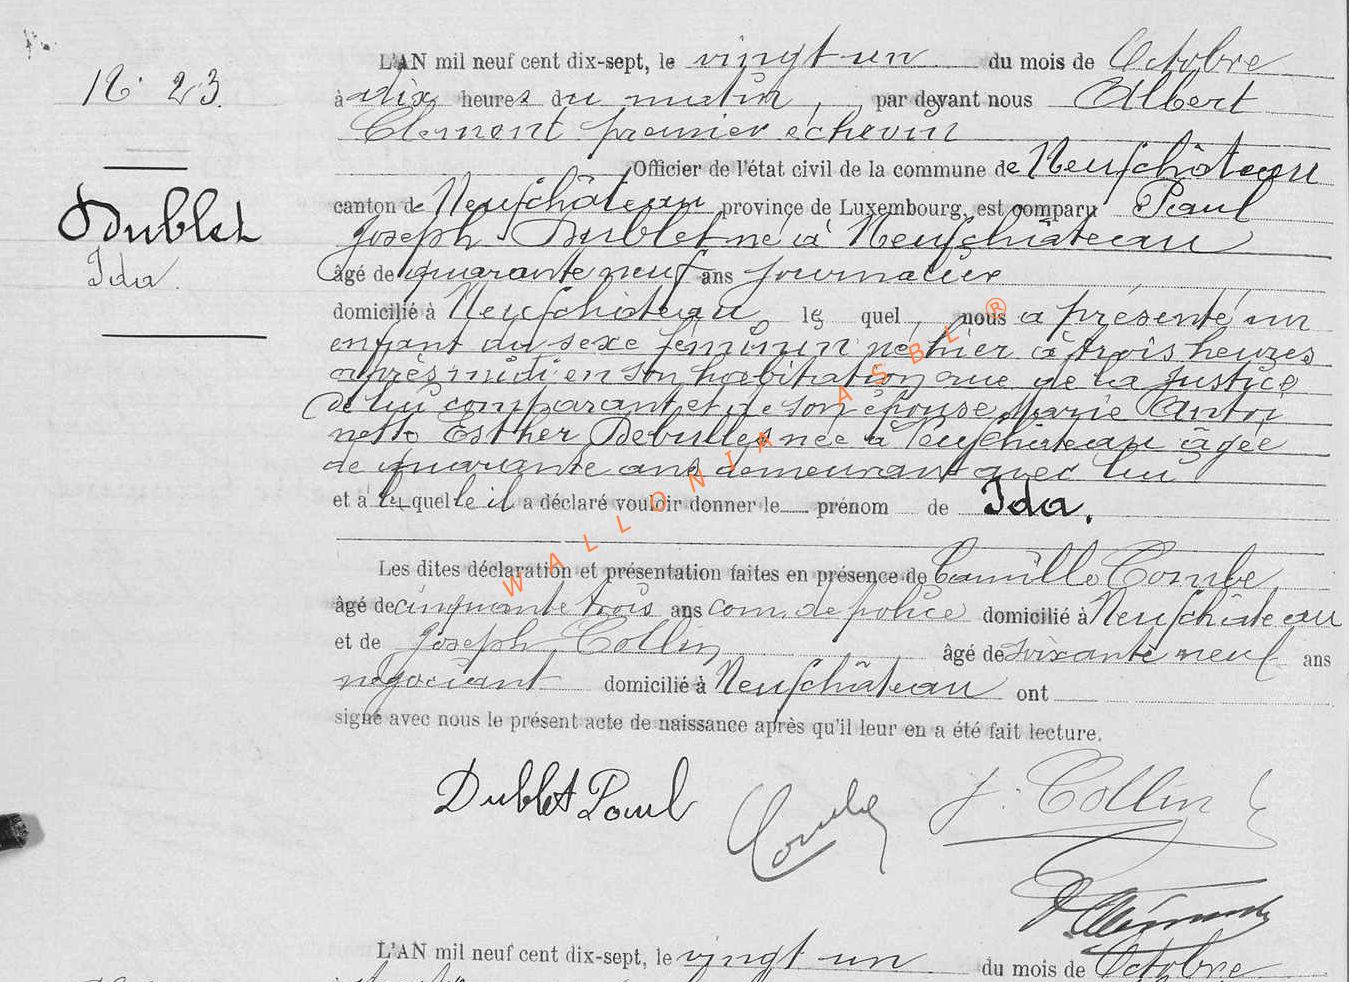 L'AN mil neuf cent dix-sept, le vingt un du mois de Octobre
N° 23.
à dix heures du matin, par devant nous Albert
Clement premier échevin
Officier de l'état civil de la commune de Neufchâteau
Dublet
canton de Neufchâteau province de Luxembourg, est comparu Paul
Joseph Dublet né à Neufchâteau
Ida.
âgé de quarante neuf ans journalier
domicilié à Neufchâteau lequel, nous a présenté un
enfant du sexe féminin né hier à trois heures
après midi en son habitation rue de la Justice
de lui comparant et de son épouse Marie Antoi
nette Esther née à Neufchâteau âgée
de quarante ans demeurant avec lui
et à laquelle il a déclaré vouloir donner le prénom de Ida.
Les dites déclaration et présentation faites en présence de Camille Combe
âgé de cinquante trois ans com. de police domicilié à Neufchâteau
et de Joseph Collin âgé de soixante neuf ans
négociant domicilié à Neufchâteau ont
signé avec nous le présent acte de naissance après qu'il leur en a été fait lecture.
Dublet Paul Combe J. Collin
A Clément
L'AN mil neuf cent dix-sept, le vingt un du mois de Octobre
WALLONIA ASBL ®